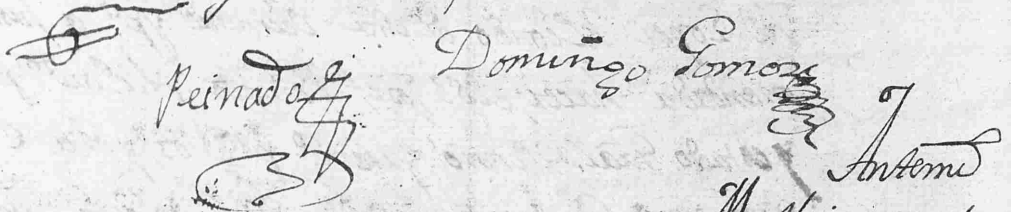 Peinado
Domingo Gomez
Antemi